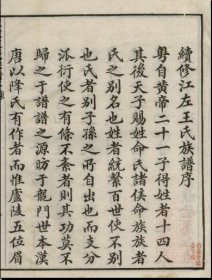 續修江左王氏族譜序
粵自黃帝二十一子得姓者十四人
其後天子賜姓命氏諸侯命族族者
氏之別名也姓者統繫百世使不別
也氏者別子孫之所自出也而支分
派衍使之有條不紊者則其功莫不
歸之于譜譜之源昉于龍門世本漢
唐以降氏有作者而惟廬陵五位眉